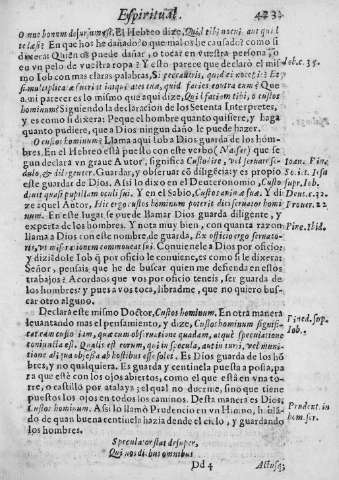 Espiritual. 423
dize, Quid tibi noceri, aut quid
En que hos he dañado? o que mal os he causado? como si
dixera: Quien os puede dañar, o tocar en vuestra persona, o
en vn pelo de vuestra ropa? Y esto parece que declaró el mis
mo Iob con mas claras palabras, Si peccaueris, quid ei nocebis? Et
si multiplicatæ fuerint iniquitates tuæ, quid facies contra eum? Que
a mi parecer es lo mismo que aqui dize, Quid faciam tibi, o custos
hominum? Siguiendo la declaracion de los Setenta Interpretes,
y es como si dixera: Peque el hombre quanto quisiere, y haga
quanto pudiere, que a Dios ningun daño le puede hazer.
O custos hominum; Llama aqui Iob a Dios guarda de los hom-
bres. En el Hebreo està puesto con este verbo (Naser) que se
gun declara vn graue Autor, significa Custodire, vel seruare se-
dulo, & diligenter. Guardar, y obseruar cõ diligẽcia; y es propio
este guardar de Dios. Assi lo dixo en el Deuteronomio, Custo
diuit quasi pupillam oculi sui. Y en el Sabio, Custos animæ tuæ. Y di
ze aquel Autor, Hic ergo custos hominum poterit dici seruator homi
num. En este lugar se puede llamar Dios guarda diligente, y
experta de los hombres. Y nota muy bien, con quanta razon
llama a Dios con este nombre, de guarda, Ex officio ergo seruato-
ris, vt miserationem commoueat sui. Conuienele a Dios por oficio;
y diziẽdole Iob q̃ por oficio le conuiene, es como si le dixera:
Señor, pensais que he de buscar quien me defienda en estos
trabajos? Acordaos que vos por oficio teneis, ser guarda de
los hombres: y pues a vos toca, libradme, que no quiero bus-
car otro alguno.
Declara este mismo Doctor, Custos hominum. En otra manera
leuantando mas el pensamiento, y dize, Custos hominum signifi-
cat quam cum obseruatione quadam, atque speculatione
coniuncta est. Qualis est eorum, qui in specula, aut in turri, vel muni-
tione aliqua obiecta ab hostibus esse soles. Es Dios guarda de los hõ
bres, y no qualquiera. Es guarda y centinela puesta a posta, pa
ra que estè con los ojos abiertos, como el que està en vna tor-
re, o castillo por atalaya; el qual no duerme, sino que tiene
puestos los ojos en todos los caminos. Desta manera es Dios;
Custos hominum. Assi lo llamò Prudencio en vn Hinno, hablã-
do de quan buena centinela hazia dende el cielo, y guardando
los hombres.
Speculator stat desuper,
Qui nos diebus omnibus
Dd 4 Actusq;
Iob. c. 35.
Ioan. Pine
Iob.
Deut. c. 32.
Prouer. 22
Pine. ibid.
Pined. sup.
Iob.
Prudent. in